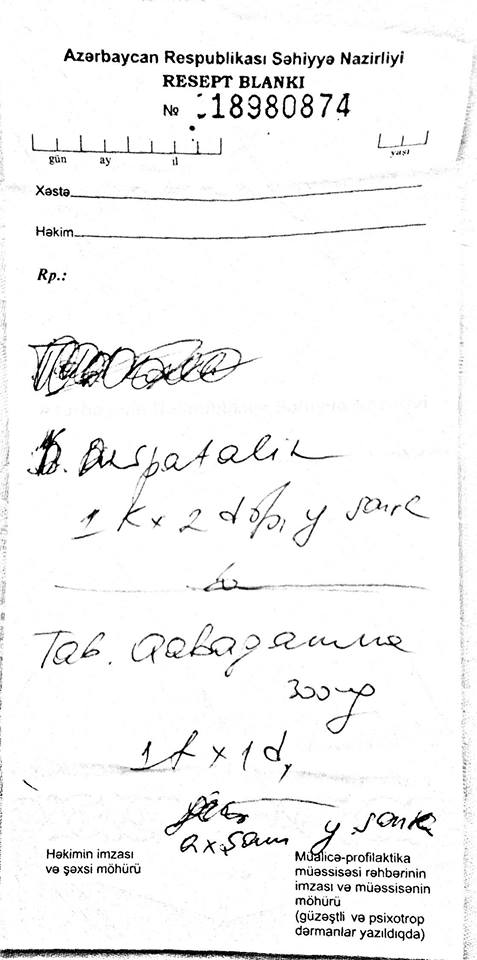 Azərbaycan Respublikası Səhiyyə Nazirliyi
RESEPT BLANKI
№ 18980874
gün ay il yaşı
Xəstə
Həkim
Rp.:
Duspatalin
1 k x 2 dəf, y sonra
Tab. Qabaqamma
300 mg
1 t x 1 d,
axşam y. sonra
Həkimin imzası
və şəxsi möhürü
Müalicə-profilaktika
müəssisəsi rəhbərinin
imzası və müəssisənin
möhürü
(güzəştli və psixotrop
dərmanlar yazıldıqda)